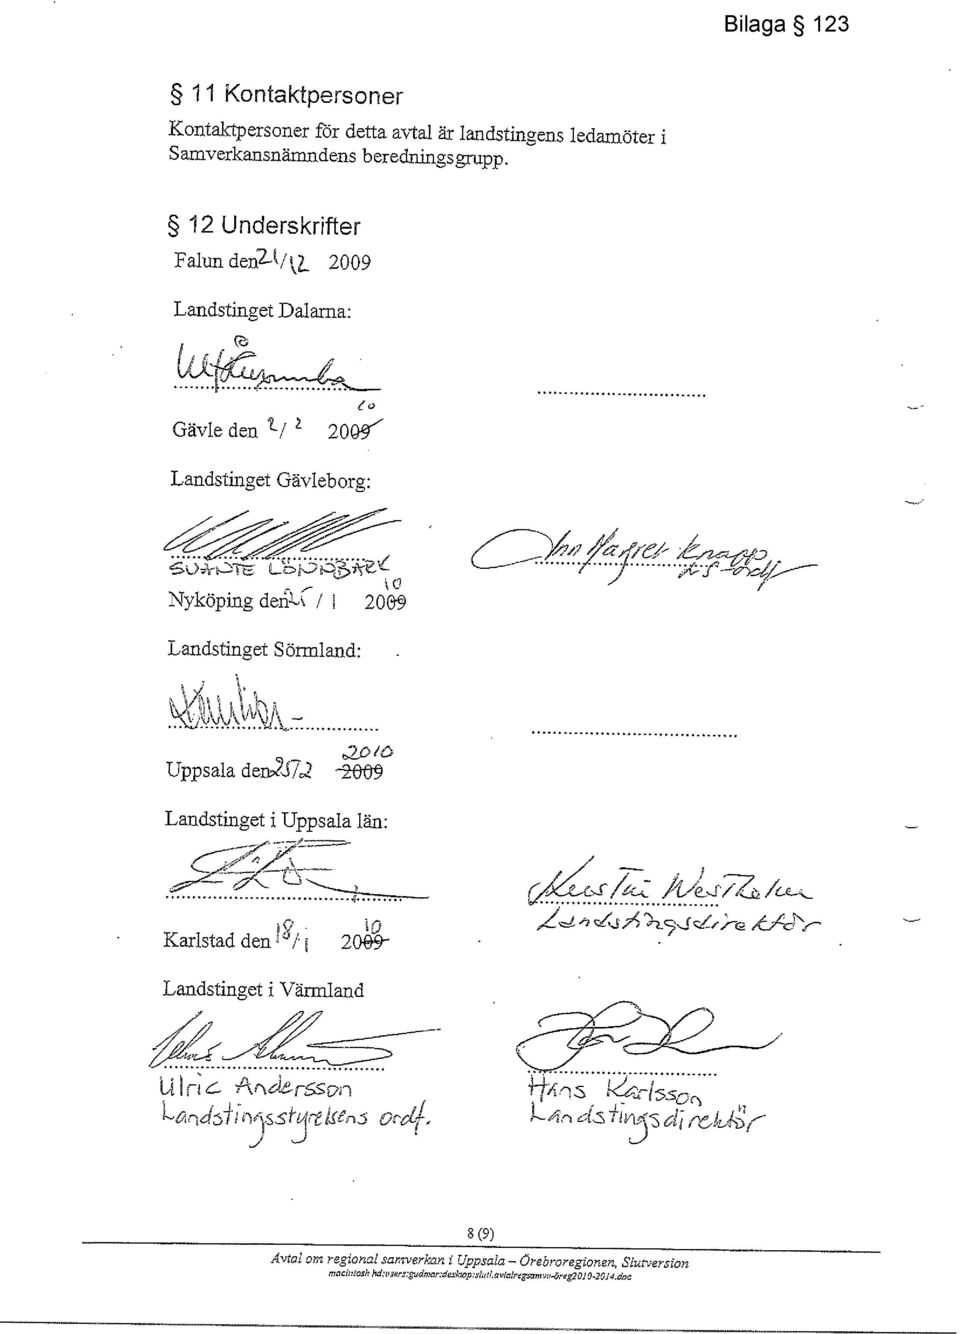 Bilaga § 123
§ 11 Kontaktpersoner
Kontaktpersoner för detta avtal är landstingens ledamöter i
Samverkansnämndens beredningsgrupp.
§ 12 Underskrifter
Falun den 21/12 2009
Landstinget Dalarna:
10
Gävle den 2/2 2009
Landstinget Gävleborg:
Ann Margret Knapp
SVANTE LÖNNBARK
LS-ordf
10
Nyköping den 25/1 2009
Landstinget Sörmland:
2010
Uppsala den 25/2 2009
Landstinget i Uppsala län:
Kerstin Westholm
Landstingsdirektör
10
Karlstad den 18/1 2009
Landstinget i Värmland
Ulric Andersson Hans Karlsson
Landstingsstyrelsens ordf. Landstingsdirektör
8 (9)
Avtal om regional samverkan i Uppsala – Örebroregionen, Slutversion
macintosh hd:users:gudmar:desktop:slutl.avtalregsamvu-öreg2010-2014.doc